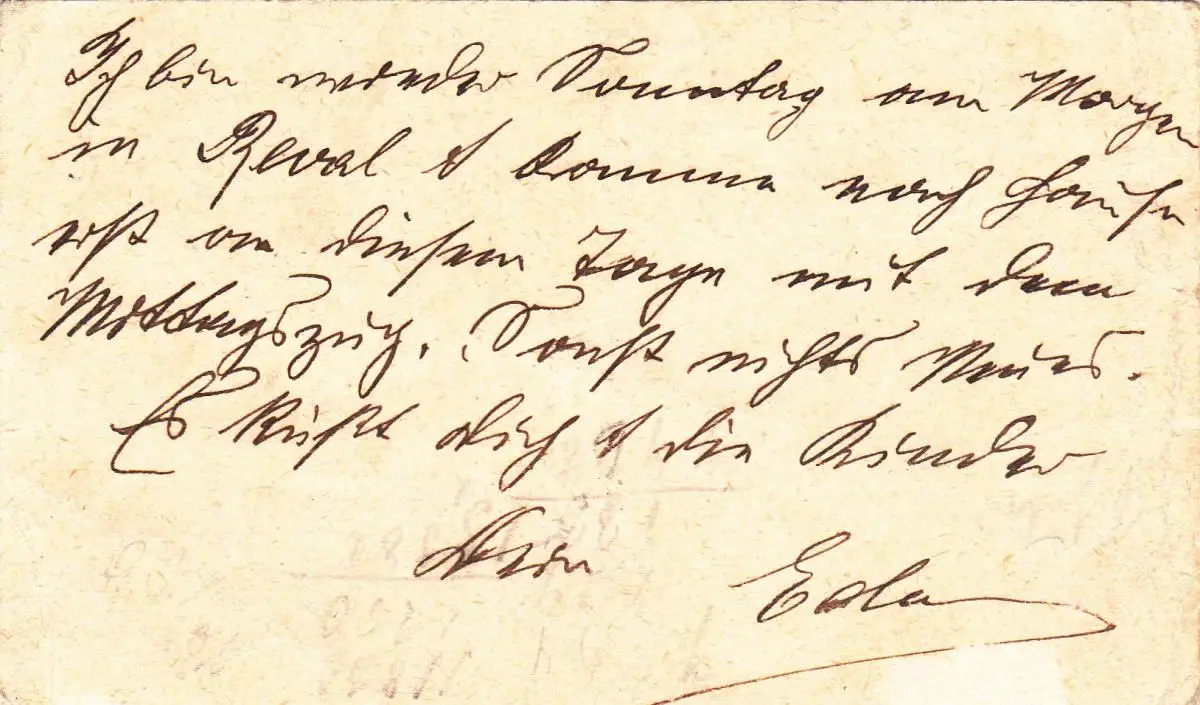 Ich bin wieder Sonntag am Morgen
in Reval & komme nach Hause
erst an diesem Tage mit dem
Mittagszug. Sonst nichts Neues.
Es küßt Dich & die Kinder
Dein Edla